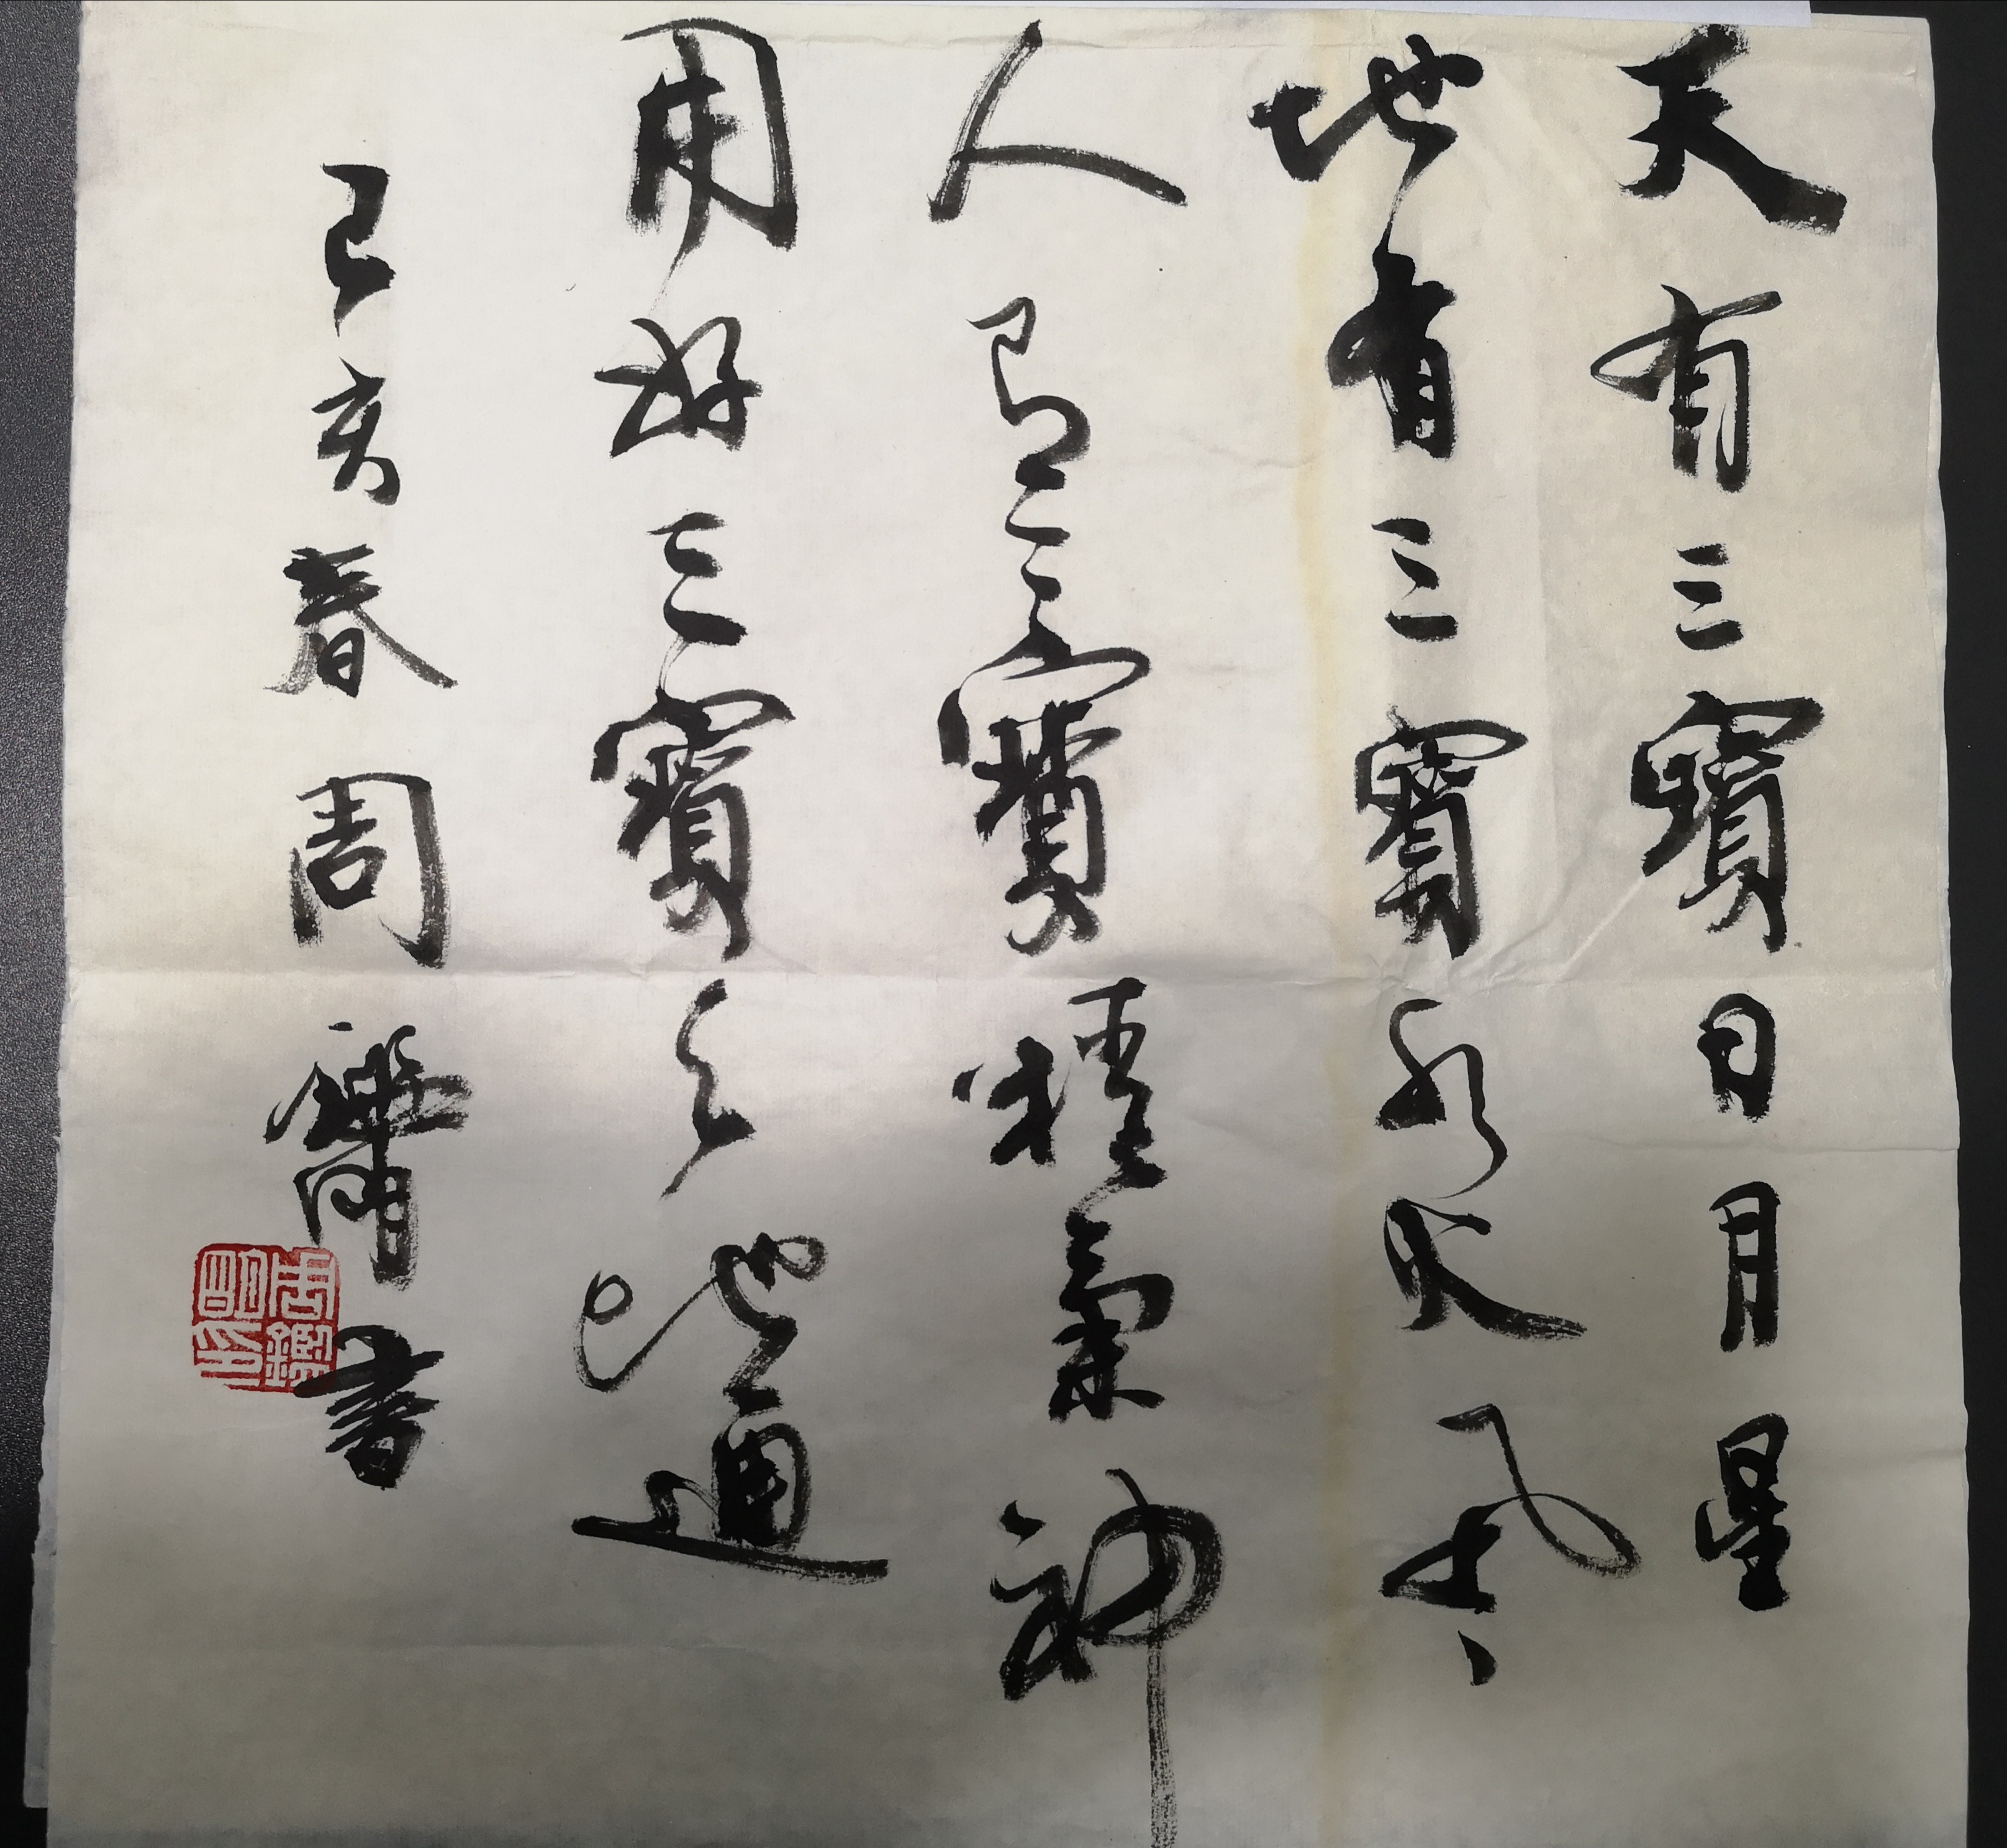 天有三寶日月星
地有三寶水火風
人有三寶精氣神
用好三寶天地通
己亥春周書
周鑑明印